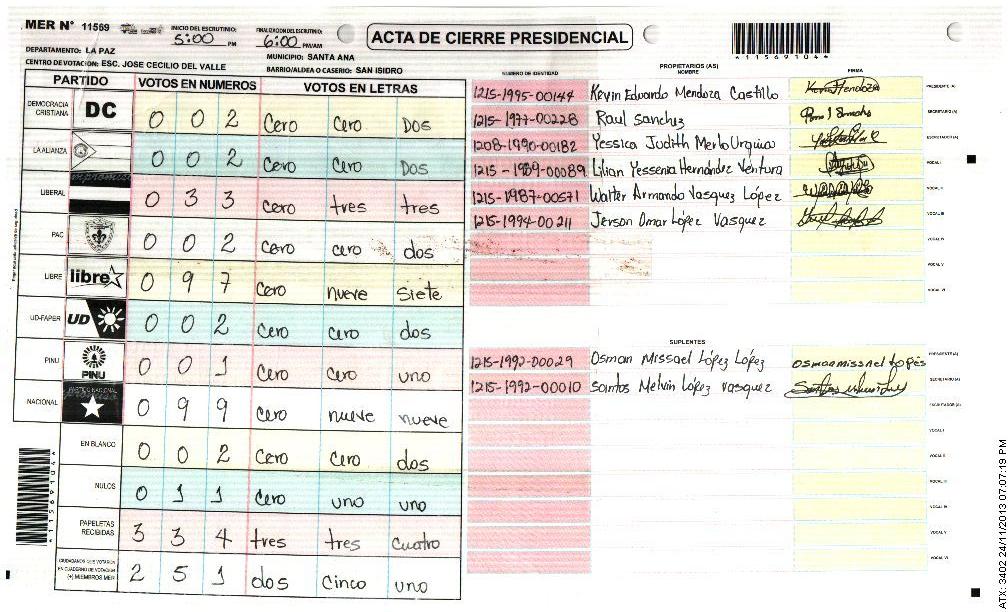 MER N° 11569
INICIO DEL ESCRUTINIO:
5:00 PM
FINALIZACION DEL ESCRUTINIO:
6:00 PM/AM
ACTA DE CIERRE PRESIDENCIAL
*115691044*
DEPARTAMENTO: LA PAZ
MUNICIPIO: SANTA ANA
CENTRO DE VOTACION: ESC. JOSE CECILIO DEL VALLE
BARRIO/ALDEA O CASERIO: SAN ISIDRO
PARTIDO VOTOS EN NUMEROS VOTOS EN LETRAS
DEMOCRACIA CRISTIANA DC 0 0 2 cero cero Dos
LA ALIANZA 0 0 2 cero cero Dos
LIBERAL 0 3 3 cero tres tres
PAC 0 0 2 cero cero dos
LIBRE libre 0 9 7 cero nueve siete
UD-FAPER UD 0 0 2 cero cero dos
PINU PINU 0 0 1 cero cero uno
NACIONAL PARTIDO NACIONAL 0 9 9 cero nueve nueve
EN BLANCO 0 0 2 cero cero dos
NULOS 0 1 1 cero uno uno
PAPELETAS RECIBIDAS 3 3 4 tres tres cuatro
CIUDADANOS QUE VOTARON EN CUADERNO DE VOTACION (+) MIEMBROS MER 2 5 1 dos cinco uno
PROPIETARIOS (AS)
NUMERO DE IDENTIDAD NOMBRE FIRMA
1215-1995-00144 Kevin Eduardo Mendoza Castillo PRESIDENTE (A)
1215-1977-00228 Raul Sanchez SECRETARIO (A)
1208-1990-00182 Yessica Judith Merlo Urquia ESCRUTADOR (A)
1215-1989-00089 Lilian Yessenia Hernández Ventura VOCAL I
1215-1987-00571 Walter Armando Vasquez López VOCAL II
1215-1994-00211 Jerson Omar López Vasquez VOCAL III
VOCAL IV
VOCAL V
VOCAL VI
SUPLENTES
1215-1992-00029 Osman Missael López López PRESIDENTE (A)
1215-1992-00010 Santos Melvin López Vasquez SECRETARIO (A)
ESCRUTADOR (A)
VOCAL I
VOCAL II
VOCAL III
VOCAL IV
VOCAL V
VOCAL VI
*115691044*
ATX: 3402 24/11/2013 07:07:19 PM